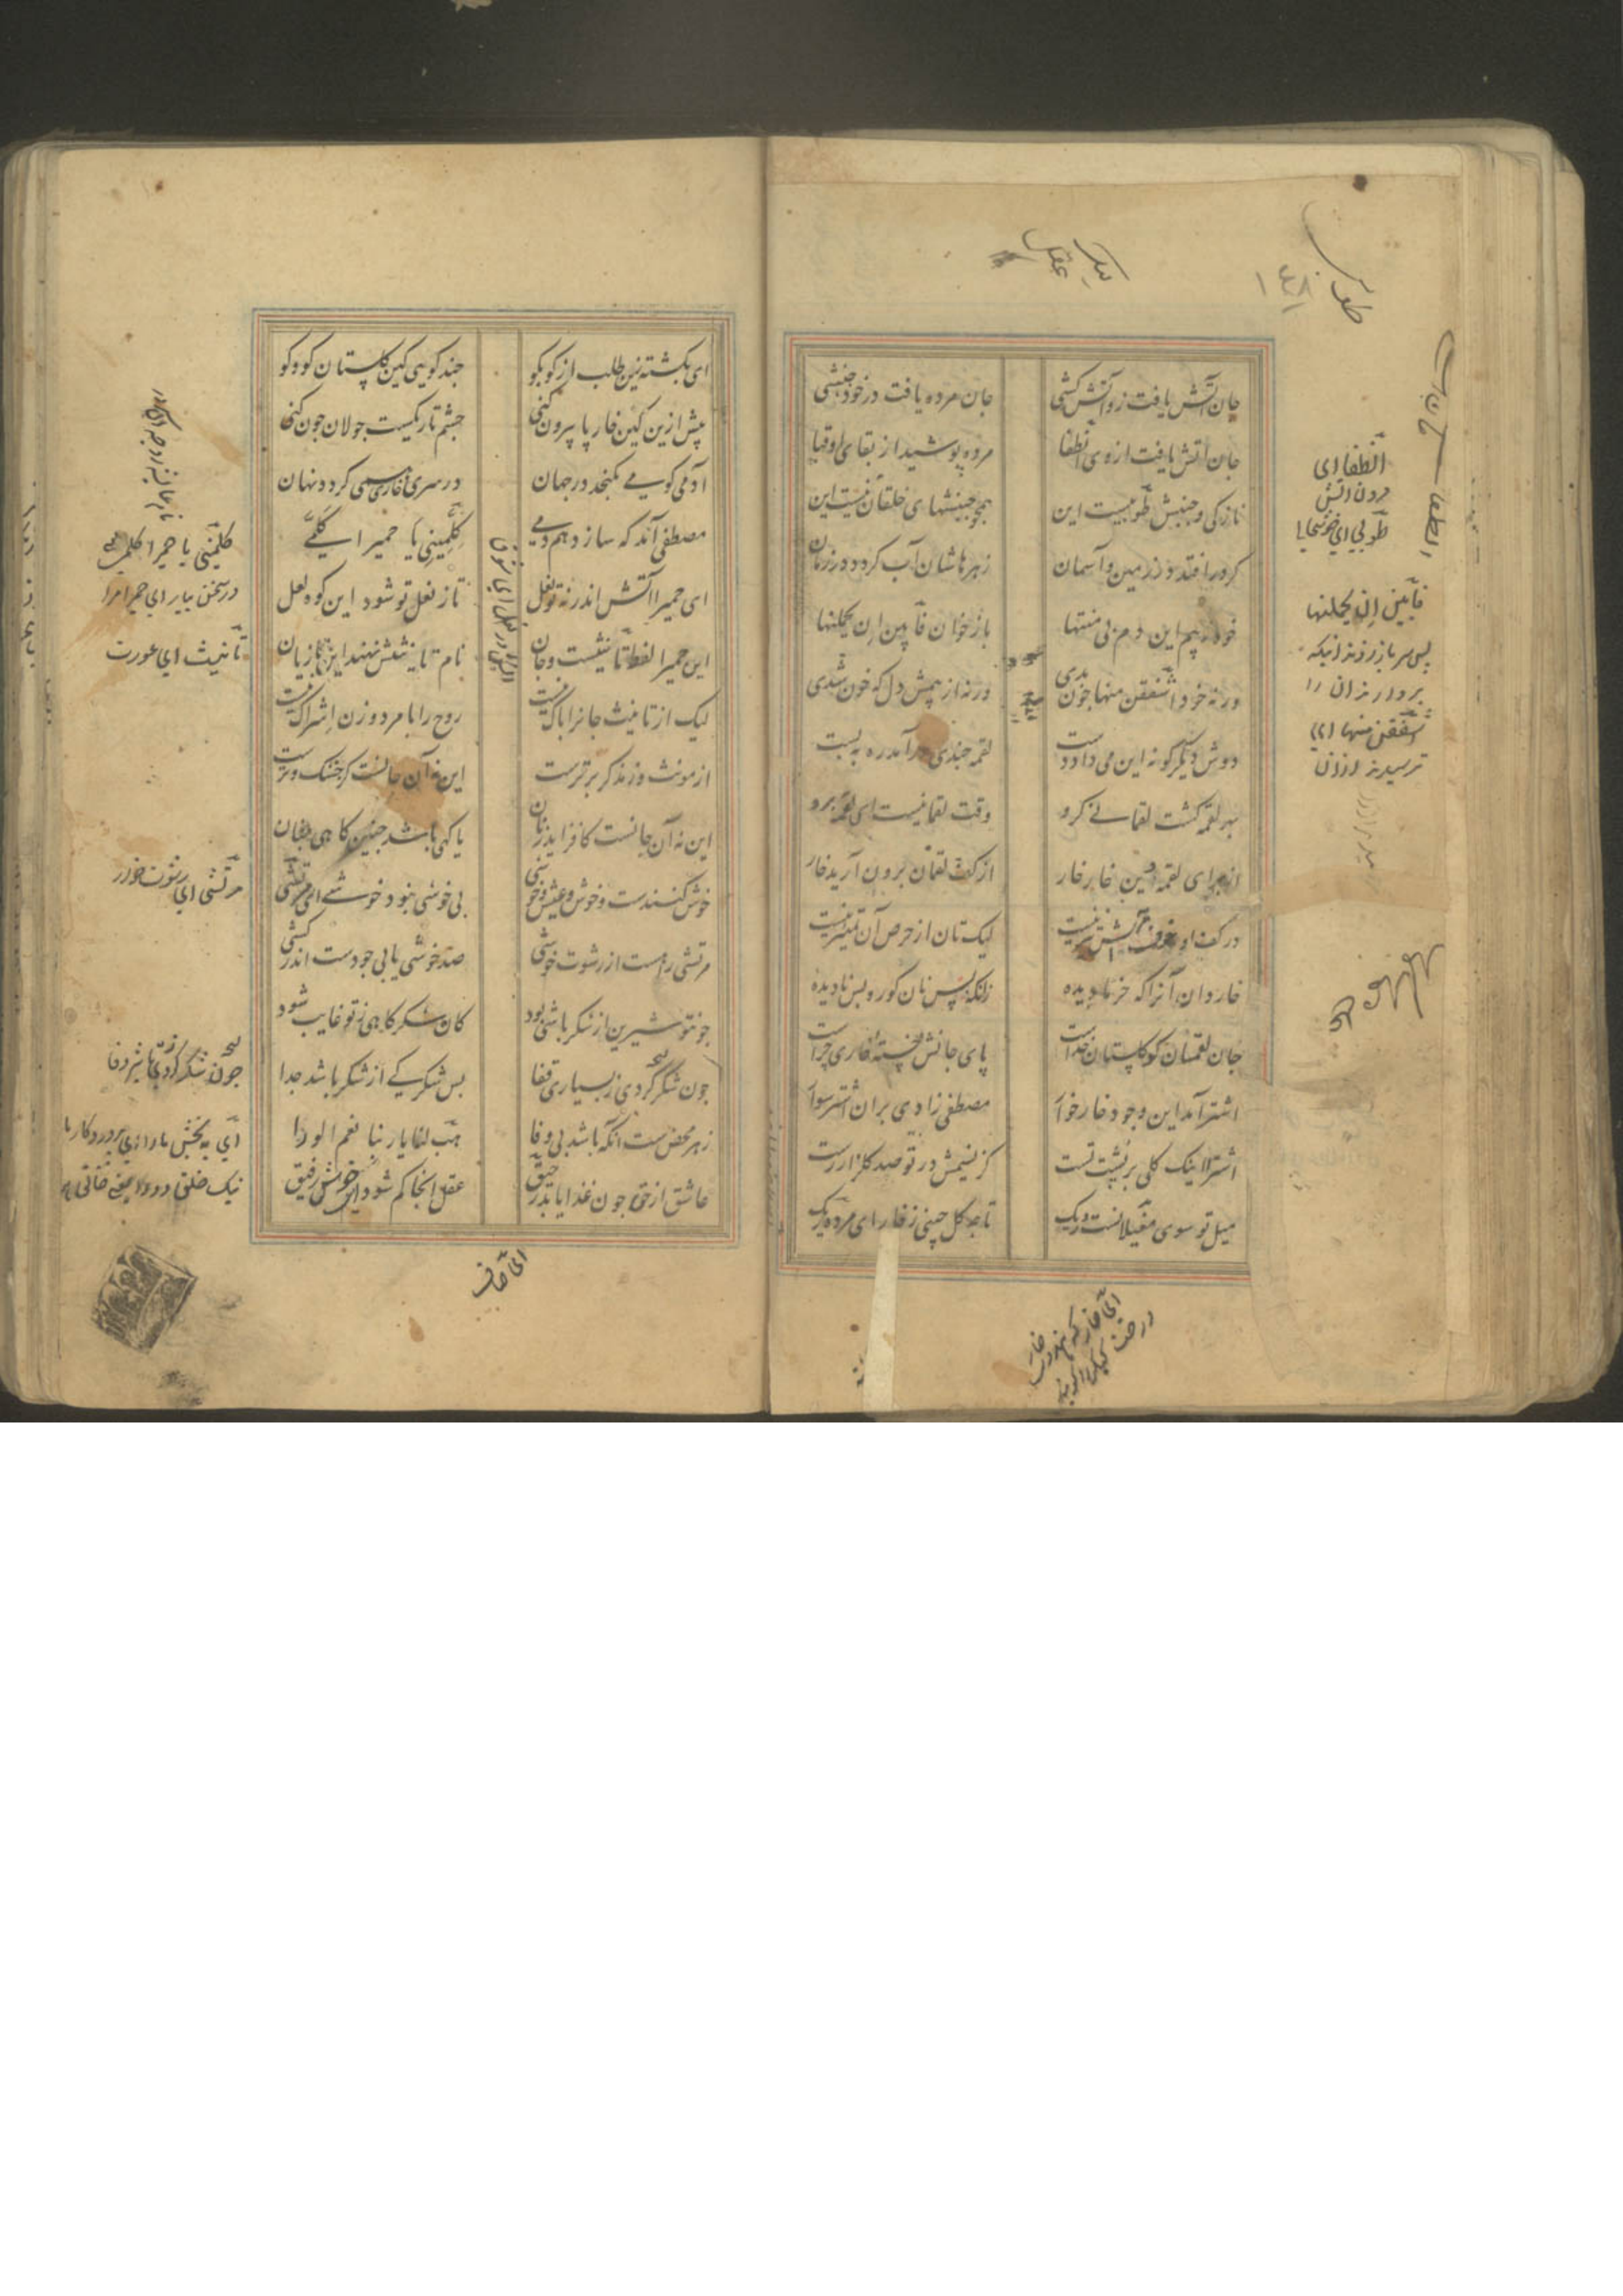 جان آتش یافت زو آتش کشی جان مرده یافت در خود جنبشی
جان آتش یافت ازوی انطفا مرده پوشید از بقای او قبا
تازگی و جنبش طوبیست این همچو جنبشهای خلقان نیست این
کر در افتد در زمین و آسمان زهرهاشان آب کردد در زمان
خود ز بیم این دم بی منتها باز خوان فابین ان یحملنها
ورنه خود اشفقن منها چون بدی ورنه از بیمش دل که خون شدی
دوش دیگر گونه این می داد دست لقمه چندی در آمد ره به بست
بهر لقمه کشت لقمانے کرو وقت لقمانیست ای لقمه برو
از برای لقمه این خار خار از کف لقمان برون آرید خار
در کف او خار و سایش نیز نیست لیک تان از حرص آن تمییز نیست
خار دان آنرا که خرما دیده زانکه بس نان کور و بس نادیده
جان لقمان کو کلستان خداست پای جانش خسته خاری چراست
اشتر آمد این وجود خار خوار مصطفی زادی بران اشتر سوار
اشترا اینک کلی بر پشت تست کز نسیمش در تو صد کلزار رست
میل تو سوی مغیلانست و ریک تا چه کل چینی ز خار ای مرده ریک
انطفا ای
مردن اتش
طوبی ای خوشی
فابین ان یحملنها
پس سر باز زدند انیکه
بردارند ان را
اشفقن منها ای
ترسیدند ازان
١٤٨
ای بکشته زین طلب از کو بکو چند کویی کین کلستان کو و کو
پیش ازین کین خار پا بیرون کنی چشم تاریکست جولان چون کنی
آدمی کو می نکنجد در جهان در سری خاری همی کردد نهان
مصطفی آمد که سازد هم دمی کلمینی یا حمیرا کلمی
ای حمیرا آتش اندر نه تو نعل تا ز نعل تو شود این کوه لعل
این حمیرا لفظ تانیثست و جان نام تانیثش نهند این تازیان
لیک از تانیث جانرا باک نیست روح را با مرد و زن اشراک نیست
از مونث وز مذکر برترست این نه آن جانست کز خشک و ترست
این نه آن جانست کافزاید ز نان یا کهی باشد چنین کاهی چنان
خوش کننده ست و خوش و عین خوشی بی خوشی نبود خوشی ای مرتشی
مرتشی را هست از رشوت خوشی صد خوشی یابی چو دست اندر کشی
چون تو شیرین از شکر باشی بود کان شکر کاهی ز تو غایب شود
چون شکر کردی ز بسیاری وفا پس شکر کے از شکر باشد جدا
زهر محض ست آنکه باشد بی وفا هب لنا یا ربنا نعم الورا
عاشق از حق چون غذا یابد رحیق عقل آنجا کم شود ای رفیق
کلمینی یا حمیرا کلمی
در سخن بیار ای حمیرا مرا
تانیث ای عورت
مرتشی ای رشوت خور
چون شکر کردی ز تاثیر وفا
ای به بخش مارا ای پروردکار ما
ای صاف